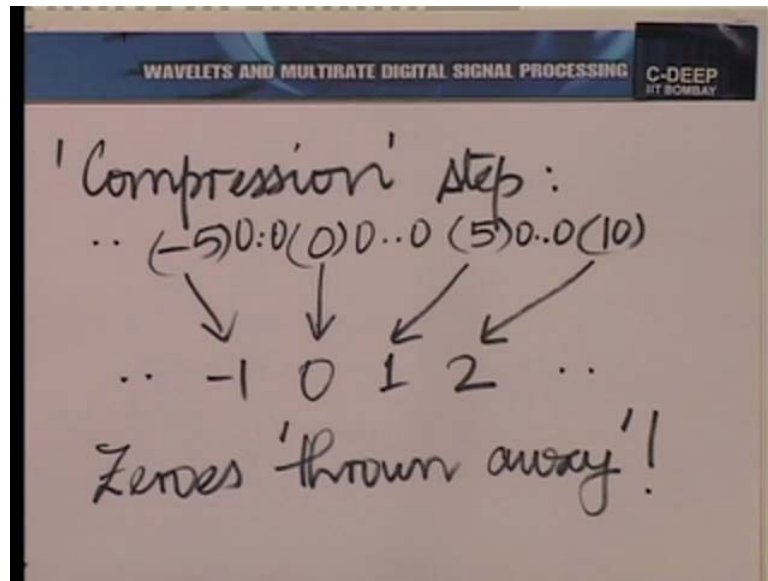 WAVELETS AND MULTIRATE DIGITAL SIGNAL PROCESSING
C-DEEP
IIT BOMBAY
'Compression' step:
.. (-5)0:0(0)0..0 (5)0..0(10)
.. -1 0 1 2 ..
Zeroes 'thrown away'!